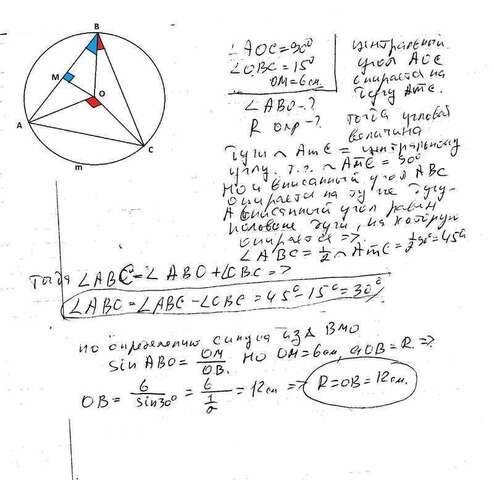 B
M
O
A
C
m
∠AOC = 90°
∠OBC = 15°
OM = 6см
∠ABO - ?
R окр - ?
центральный
угол AOC
опирается на
дугу AmC.
Тогда угловая
величина
дуги ◠ AmC = центральному
углу. т.е. ◠ AmC = 90°
Но и вписанный угол ABC
опирается на ту же дугу.
А вписанный угол равен
половине дуги, на которую
опирается =>
∠ABC = 1/2 ◠ AmC = 1/2 90° = 45°
Тогда ∠ABC = ∠ABO + ∠OBC =>
∠ABO = ∠ABC - ∠OBC = 45° - 15° = 30°
по определению синуса из Δ BMO
sin ABO = OM/OB. но OM = 6см, а OB = R =>
OB = 6/sin30° = 6/(1/2) = 12см => R = OB = 12см.